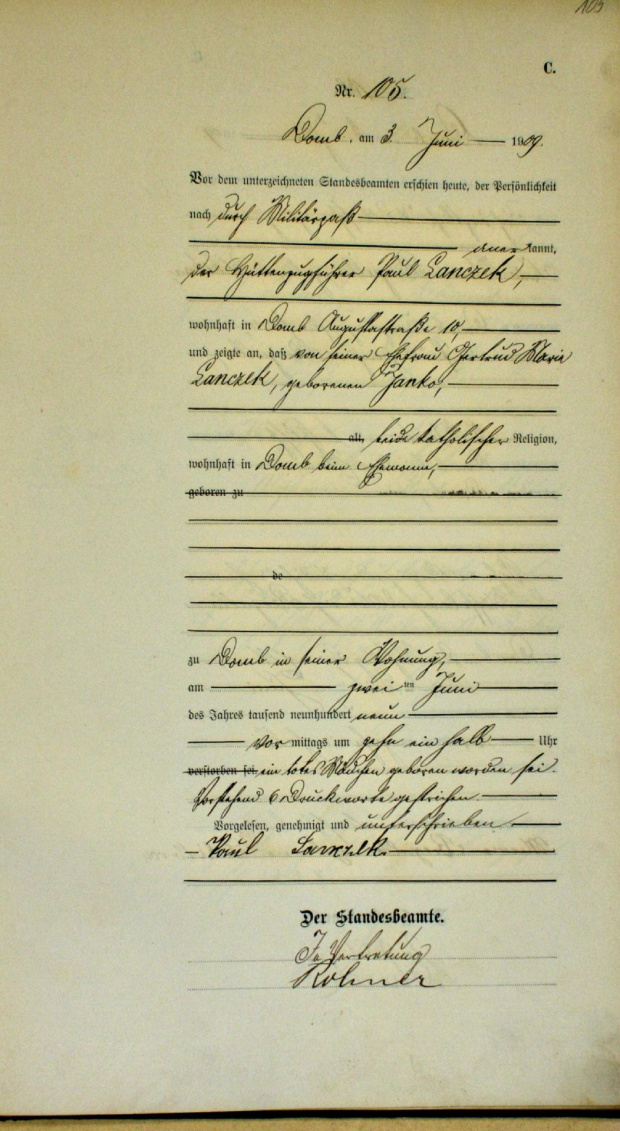 105
C.
Nr. 105.
Domb, am 3. Juni 1909.
Vor dem unterzeichneten Standesbeamten erschien heute, der Persönlichkeit
nach durch Militärpaß
anerkannt,
der Hüttenzugführer Paul Lanczek,
wohnhaft in Domb Augustastraße 10,
und zeigte an, daß von seiner Ehefrau Gertrud Marie
Lanczek, geborenen Janko,
alt, beide katholischer Religion,
wohnhaft in Domb beim Ehemanne,
geboren zu
de
zu Domb in seiner Wohnung,
am zwei ten Juni
des Jahres tausend neunhundert neun
vor mittags um zehn ein halb Uhr
verstorben sei. ein totes Mädchen geboren worden sei.
Vorstehend 6 Druckworte gestrichen.
Vorgelesen, genehmigt und unterschrieben
Paul Lanczek
Der Standesbeamte.
In Vertretung